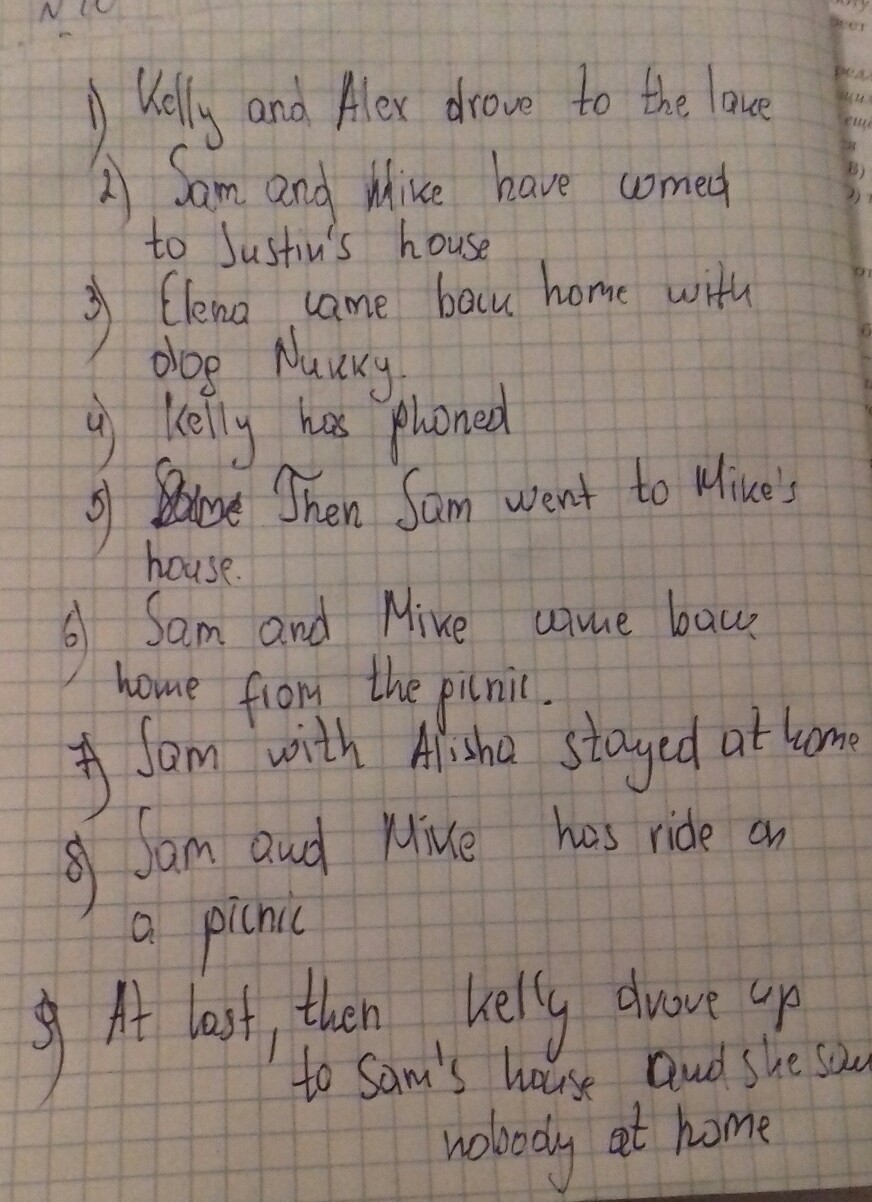 1) Kelly and Alex drove to the lake
2) Sam and Mike have comed
to Justin's house
3) Elena came back home with
dog Nukky.
4) Kelly has phoned
5) Then Sam went to Mike's
house.
6) Sam and Mike came back
home from the picnic.
7) Sam with Alisha stayed at home
8) Sam and Mike has ride on
a picnic
9) At last, then Kelly drove up
to Sam's house and she saw
nobody at home